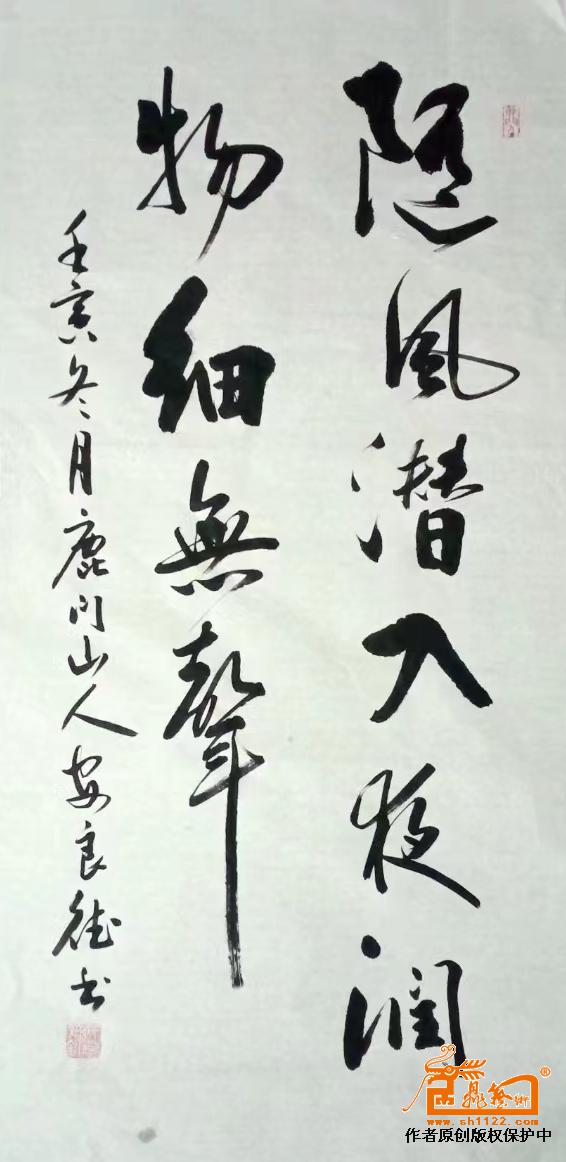 随风潜入夜润
物细無聲
壬寅冬月鹿门山人安良德书
®
www.sh1122.com
作者原创版权保护中